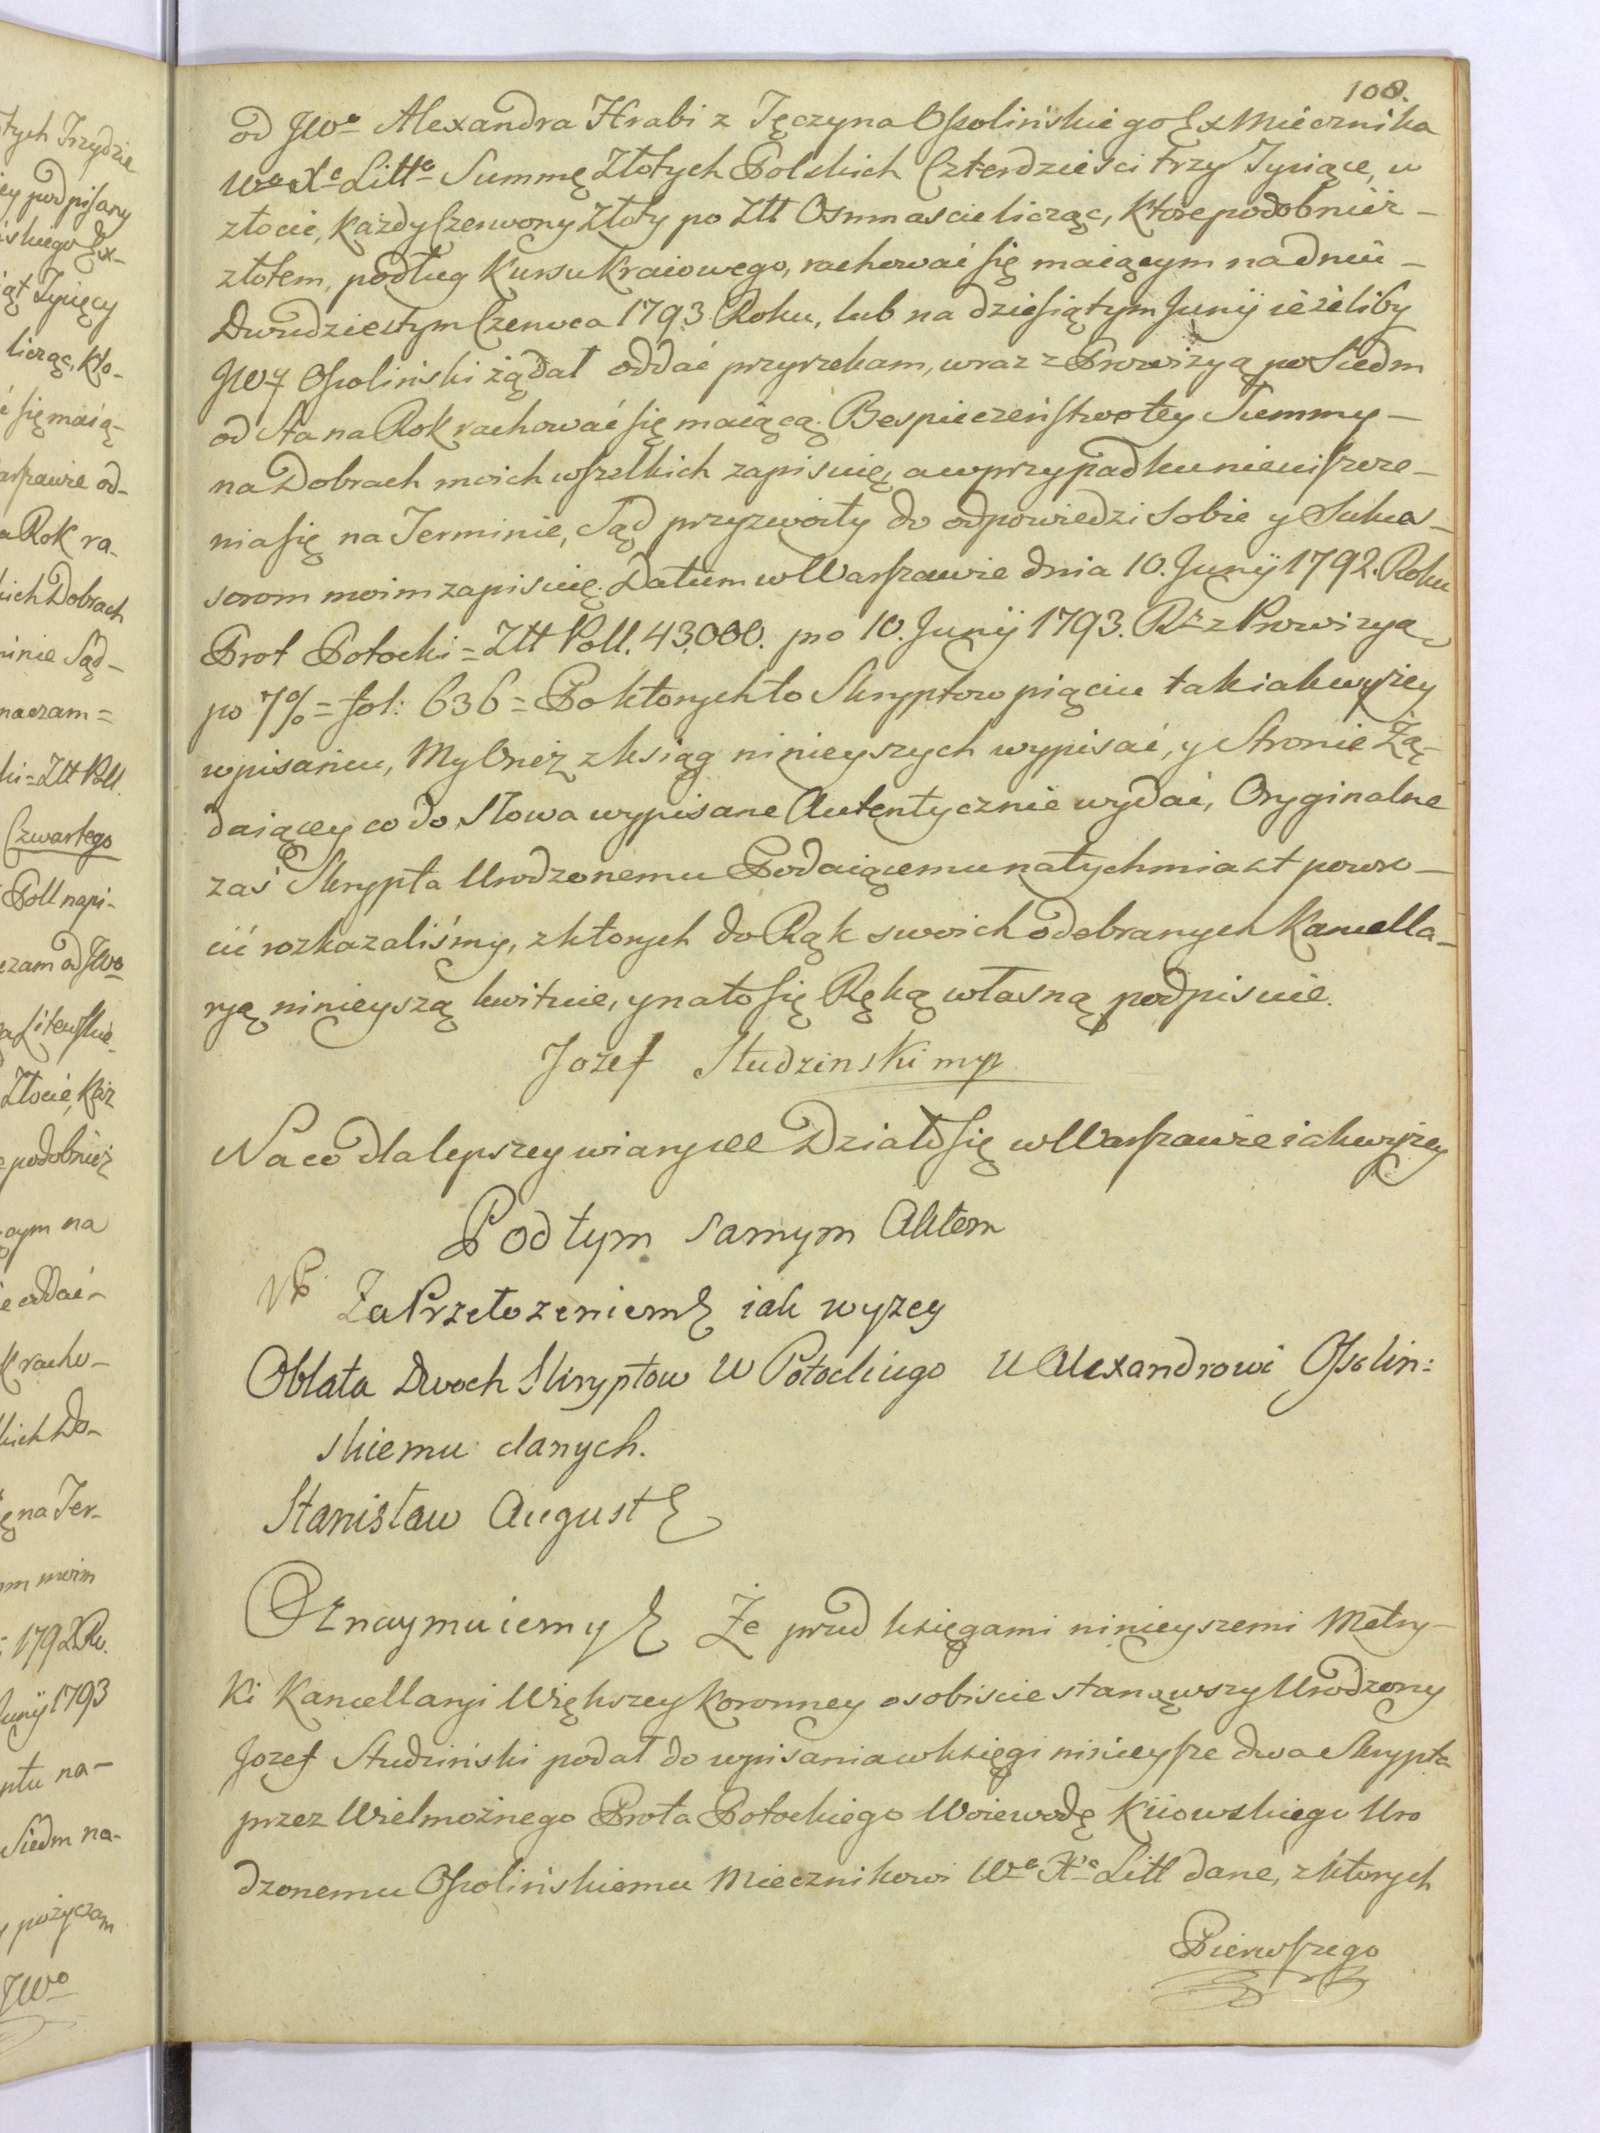 108.
od JWo Alexandra Hrabi z Tęczyna Ossolińskiego Ex Miecznika
Wo Xo Litto Summę Złotych Polskich Czterdziesci trzy Tysiące, w
złocie, każdy Czerwony Złoty po Złt Osmnascie licząc, ktore podobnież –
złotem, podług kursu kraiowego, rachować się maiącym na dniu –
Dwudziestym Czerwca 1793 Roku, lub na dziesiątym Junij ieżeliby
JWy Ossoliński żądał oddać przyrzekam, wraz z Prowizyą po Siedm
od Sta na Rok rachować się maiącą. Bespieczeństwo tey Summy –
na Dobrach moich wszelkich zapisuię, a w przypadku nieuiszcze–
nia się na Terminie, Sąd przyzwoity do odpowiedzi Sobie y Sukces–
sorom moim zapisuię. Datum w Warszawie dnia 10. Junij 1792. Roku
Prot Potocki = Złt Poll. 43,000. pro 10. Junij 1793. Ru z Prowizyą
po 7% = fol: 636 = Po ktorych to Skryptow pięciu tak iak wyżey
wpisaniu, My Oneż z ksiąg ninieyszych wypisać, y Stronie Żą–
daiącey co do Słowa wypisane Autentycznie wydać, Oryginalne
zaś Skrypta Urodzonemu Podaiącemu natychmiast powro–
cić rozkazaliśmy, z ktorych do Rąk swoich odebranych Kancella–
ryą ninieyszą kwituie, y na to się Ręką własną podpisuie.
Jozef Studzinski mp
Na co dla lepszey wiary &c Działo się w Warszawie iak wyżey
Pod tym samym Aktem
Za Przełozeniem &c iak wyzey
Oblata Dwoch Skryptow W Potockiego U Alexandrowi Ossolin:
skiemu danych.
Stanisław August &c
Oznaymuiemy &c Że przed księgami ninieyszemi Metry–
ki Kancellaryi Większey Koronney osobiscie stanąwszy Urodzony
Jozef Studziński podał do wpisania w księgi ninieysze dwa Skrypta
przez Wielmożnego Prota Potockiego Woiewodę Kiiowskiego Uro
dzonemu Ossolińskiemu Miecznikowi Wo Xo Litt dane, z ktorych
Pierwszego